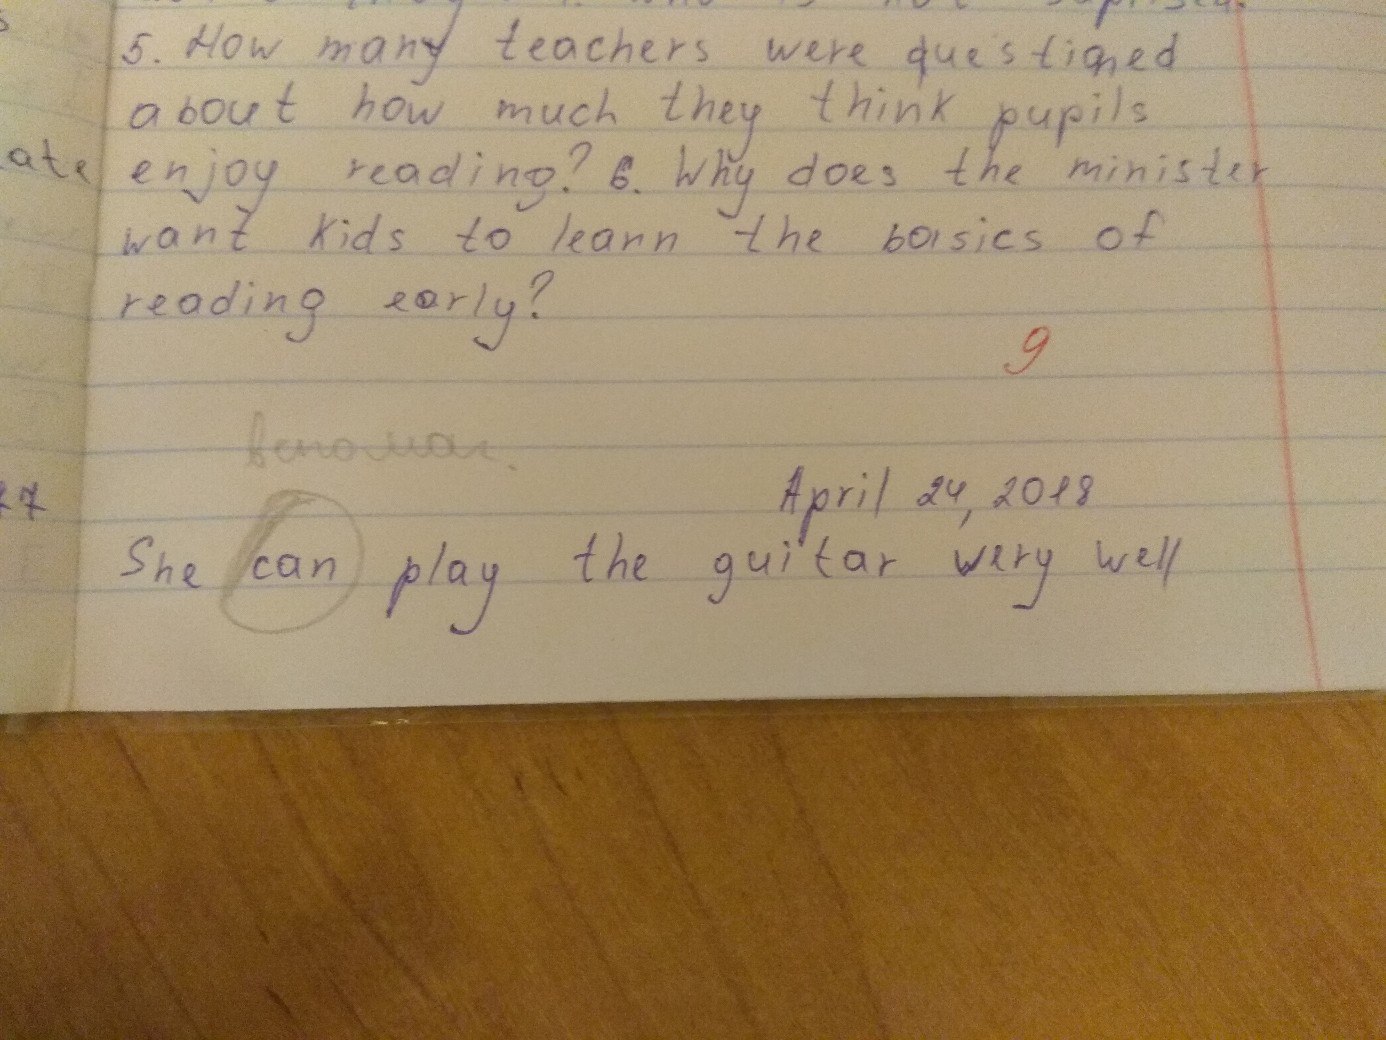 5. How many teachers were questioned
about how much they think pupils
ate enjoy reading? 6. Why does the minister
want kids to learn the basics of
reading early?
9
вспомог.
April 24, 2018
She can play the guitar very well